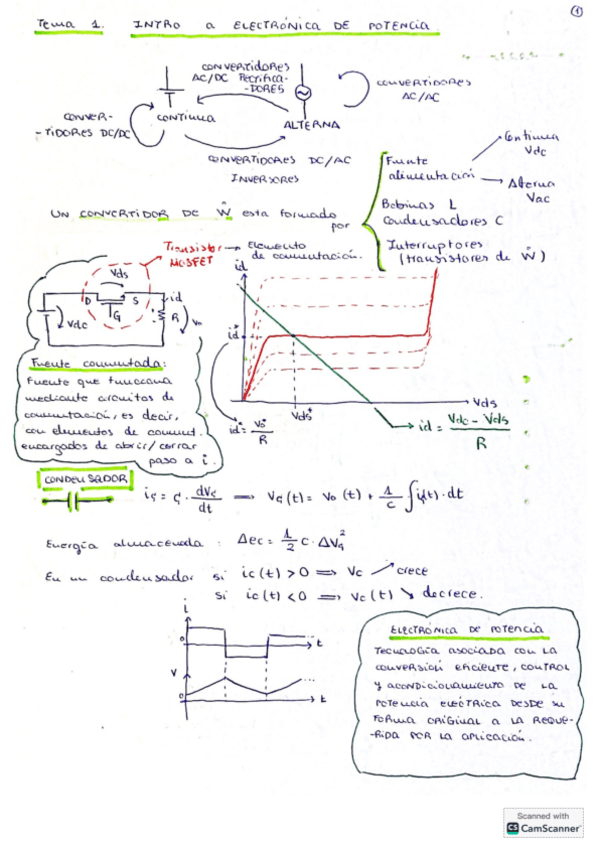 ①
Tema 1. INTRO a ELECTRÓNICA DE POTENCIA.
CONVERTIDORES
AC/DC Rectifica-
-DORES
CONVERTIDORES
AC/AC
CONVER-
-TIDORES DC/DC
CONTINUA
ALTERNA
CONVERTIDORES DC/AC
INVERSORES
UN CONVERTIDOR DE Ẇ esta formado
por
Fuente
alimentación
Continua
Vdc
Alterna
Vac
Bobinas L
Condensadores C
Interruptores
(transistores de Ẇ)
Transistor
MOSFET
Elemento
de conmutación.
Vds
D
S
G
id
R
Vo
Vdc
id
id*
Vds*
Vds
id* = Vo*/R
id = (Vdc - Vds)/R
Fuente conmutada:
Fuente que funciona
mediante circuitos de
conmutación, es decir,
con elementos de conmut.
encargados de abrir/cerrar
paso a i.
CONDENSADOR
iç = ç · dVç/dt ⟹ Vç(t) = Vo(t) + 1/c ∫ iç(t)·dt
Energía almacenada : Δec = 1/2 C·ΔVç²
En un condensador si ic(t) > 0 ⟹ Vc ↗ crece
si ic(t) < 0 ⟹ Vc(t) ↘ decrece.
i
0
t
V
0
t
ELECTRÓNICA DE POTENCIA
TECNOLOGÍA ASOCIADA CON LA
CONVERSIÓN EFICIENTE, CONTROL
Y ACONDICIONAMIENTO DE LA
POTENCIA ELÉCTRICA DESDE SU
FORMA ORIGINAL A LA REQUE-
-RIDA POR LA APLICACIÓN.
Scanned with
CS CamScanner